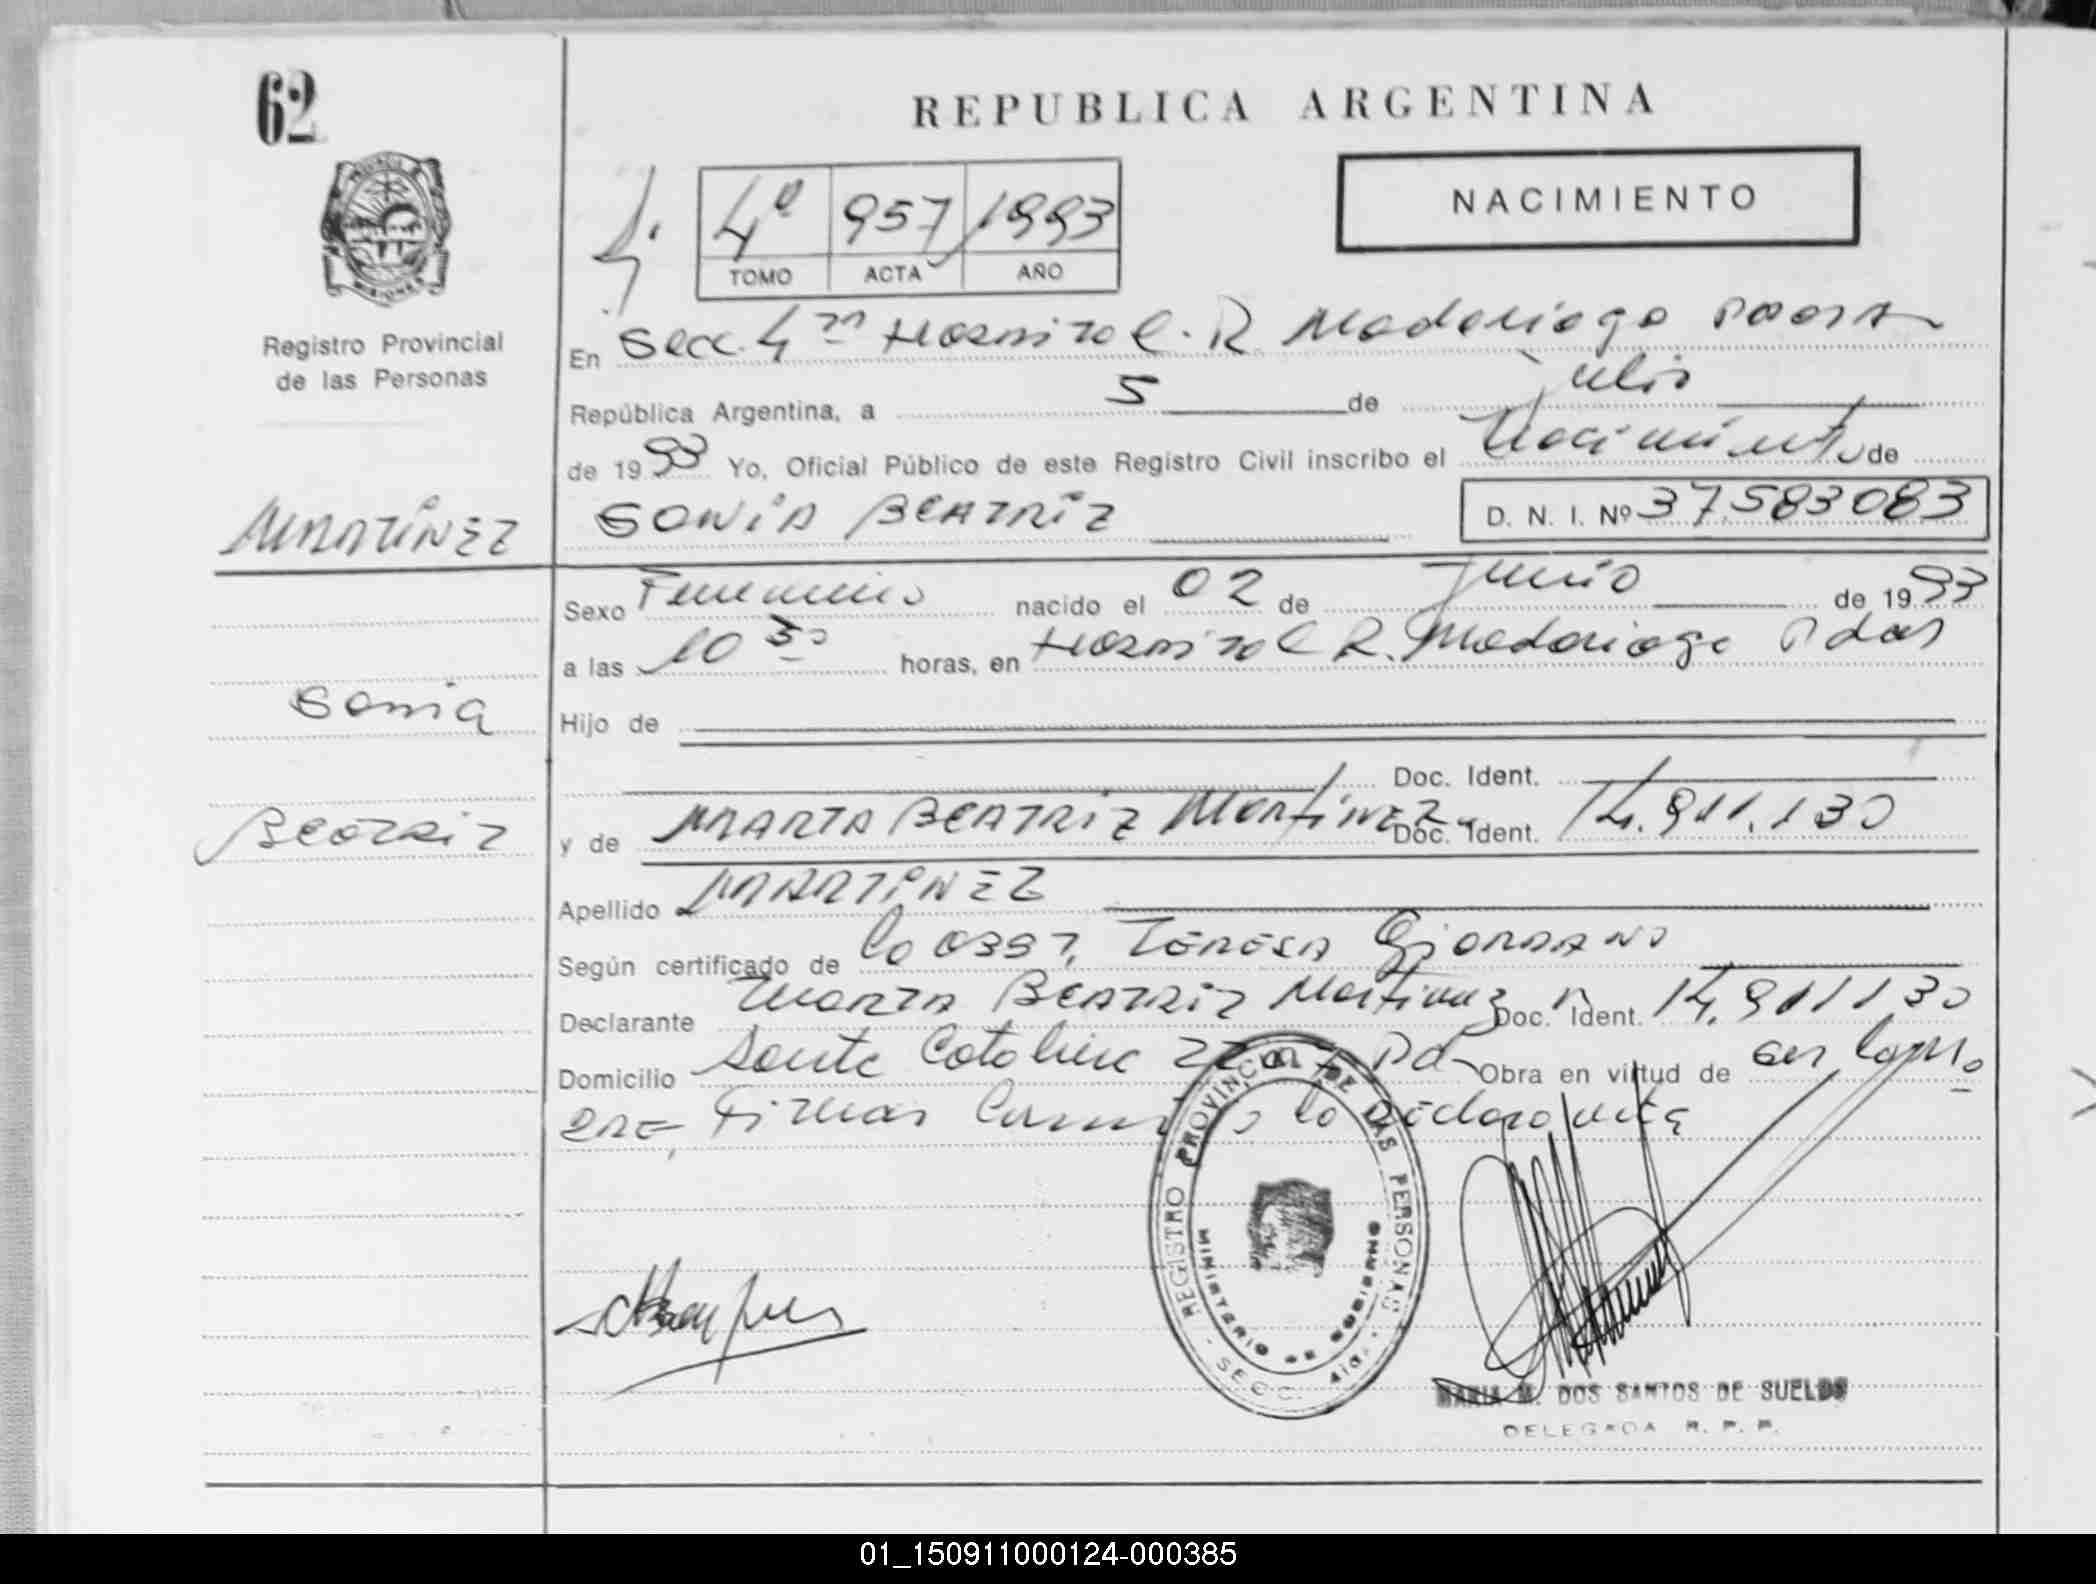 62
REPUBLICA ARGENTINA
NACIMIENTO
4º 957 1993
TOMO ACTA AÑO
Registro Provincial
de las Personas
En Secc. 4ta Hospital R. Madariaga Pdas
República Argentina, a 5 de Julio
de 1993 Yo, Oficial Público de este Registro Civil inscribo el Nacimiento de
MARTÍNEZ SONIA BEATRIZ D. N. I. Nº 37.583083
Sexo Femenino nacido el 02 de Junio de 1993
a las 10 30 horas, en Hospital R. Madariaga Pdas
Sonia
Hijo de
Doc. Ident.
Beatriz
y de MARTA BEATRIZ Martínez Doc. Ident. 14.911.130
Apellido MARTINEZ
Según certificado de la Obst. TERESA Giordano
Declarante Marta BEATRIZ Martinez Doc. Ident. 14.911130
Domicilio Santa Catalina Pdas Obra en virtud de
Firman la declarante
REGISTRO PROVINCIAL DE LAS PERSONAS
MINISTERIO DE GOBIERNO
SECC. 4ta
MARIA M. DOS SANTOS DE SUELDO
DELEGADA R. P. P.
01_150911000124-000385